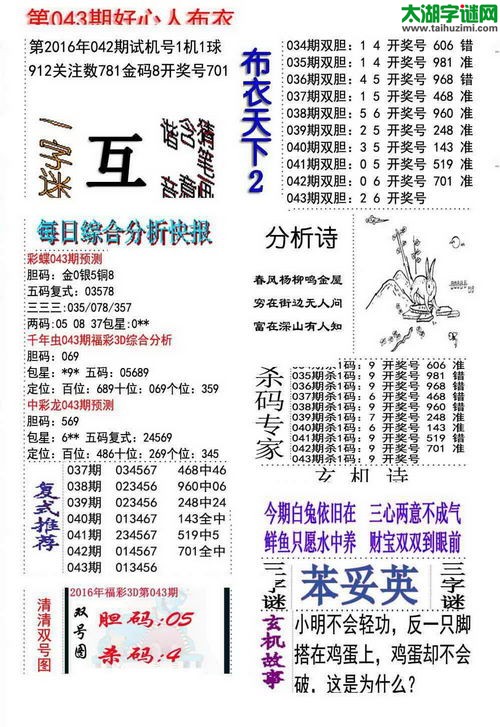 第043期好心人布衣
太湖字谜网
www.taihuzimi.com
第2016年042期试机号1机1球
912关注数781金码8开奖号701
一字迷
互
布衣天下2
034期双胆：1 4 开奖号 606 错
035期双胆：1 4 开奖号 981 准
036期双胆：4 5 开奖号 968 错
037期双胆：1 5 开奖号 468 错
038期双胆：5 6 开奖号 960 准
039期双胆：2 5 开奖号 248 准
040期双胆：3 5 开奖号 143 准
041期双胆：0 5 开奖号 519 准
042期双胆：0 6 开奖号 701 准
043期双胆：2 6 开奖号
每日综合分析快报
彩蝶043期预测
胆码：金0银5铜8
五码复式：03578
三三三:035/078/357
两码：05 08 37包星:0**
千年虫043期福彩3D综合分析
胆码：069
包星：*9* 五码：05689
定位：百位：689十位：069个位：359
中彩龙043期预测
胆码：569
包星：6** 五码复式：24569
定位：百位：486十位：269个位：345
分析诗
春风杨柳鸣金屋
穷在街边无人问
富在深山有人知
杀码专家
034期杀1码：9 开奖号 606 准
035期杀1码：9 开奖号 981 错
036期杀1码：9 开奖号 968 错
开奖号 468
038期杀1码：9 开奖号 960 错
039期杀1码：7 开奖号 248 准
040期杀1码：9 开奖号 143 准
041期杀1码：9 开奖号 519 错
042期杀1码：9 开奖号 701 准
043期杀1码：9 开奖号
复式推荐
037期 034567 468中46
038期 023456 960中06
039期 023456 248中24
040期 013467 143全中
041期 234567 519中5
042期 014567 701全中
043期 013456
玄机诗
今期白兔依旧在 三心两意不成气
鲜鱼只愿水中养 财宝双双到眼前
清清双号图
2016年福彩3D第043期
双号图
胆码：05
杀码：4
三字谜
笨妥英
三字谜
玄机故事
小明不会轻功，反一只脚
搭在鸡蛋上，鸡蛋却不会
破，这是为什么？